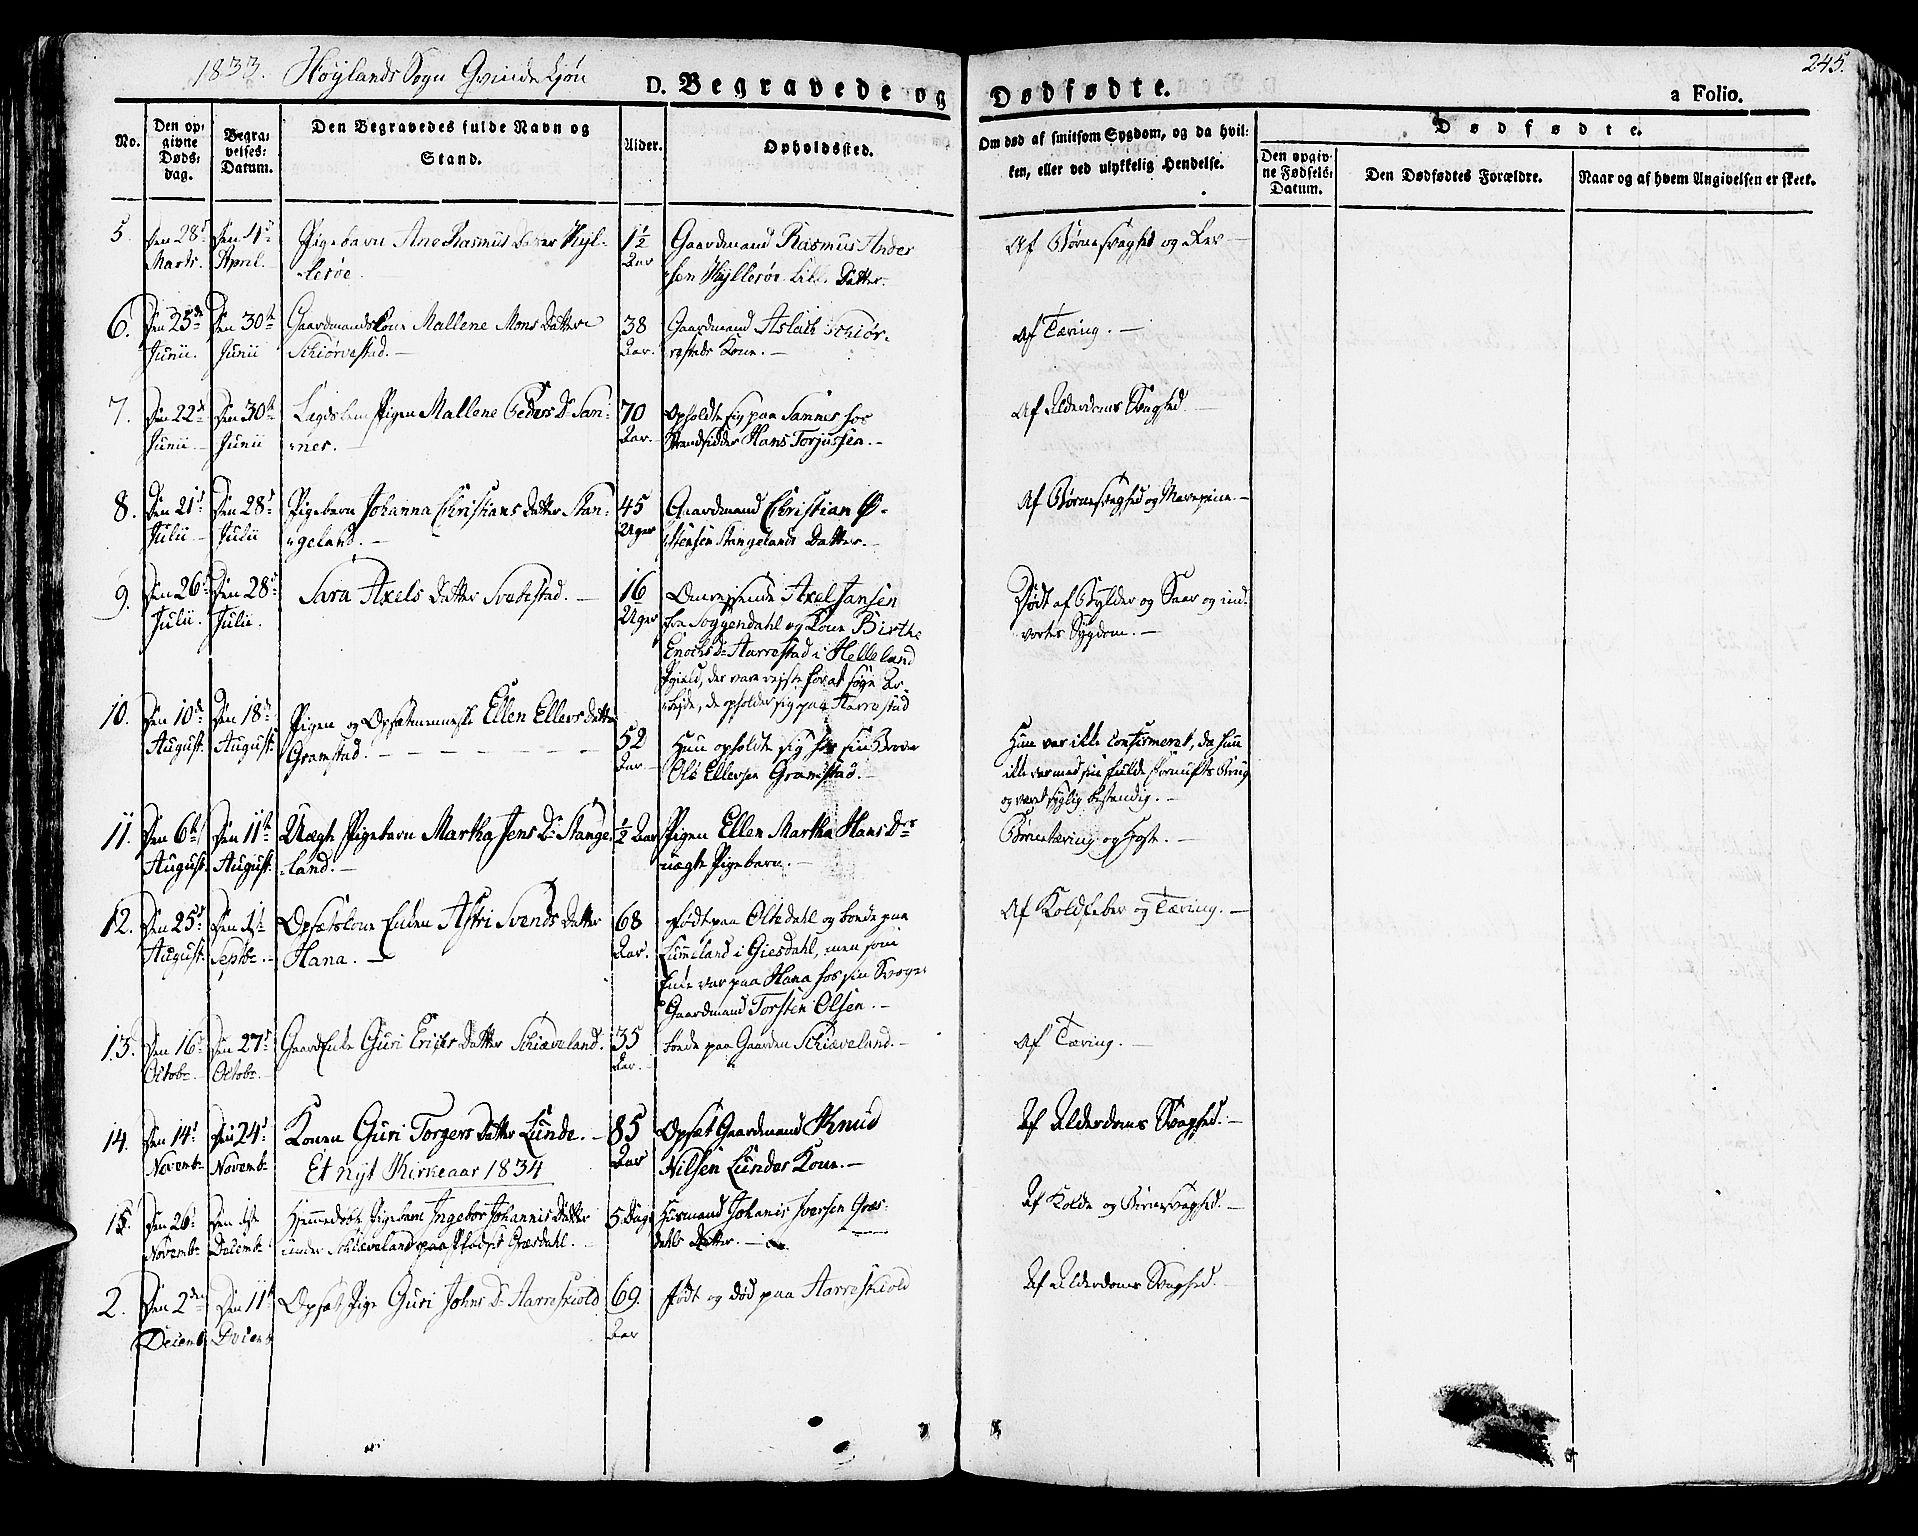 1833. Høylands Sogn Qvindekjøn
D. Begravede og Dødfødte.
a Folio.
245.
No.
Den opgivne Døds-dag.
Begravelses-Datum.
Den Begravedes fulde Navn og Stand.
Alder.
Opholdssted.
Om død af smitsom Sygdom, og da hvilken, eller ved ulykkelig Hendelse.
Dødfødte.
Den opgivne Fødsels-Datum.
Den Dødfødtes Forældre.
Naar og af hvem Angivelsen er skeet.
5. Den 28de Marts. Den April. Pigebarn Ane Rasmus Datter
1½ Aar Gaardmand Rasmus Anders
sen Datter.
Af Børnesvaghed og
6. Den 25de Junii. Den 30te Junii Gaardmandskone Mallene Mons Datter
Schiørvestad.
38 Aar. Gaardmand Aslak Schiør-
vestads Kone.
Af Tæring.
7. Den 22de Junii. Den 30te Junii Lægdslem Pigen Mallene Peders Dr San-
nes.
70 Aar. Opholdte sig paa Sannes hos
Strandsidder Hans Torjussen.
Af Alderdoms Svaghed
8. Den 21de Julii Den 28de Julii Pigebarn Johanna Christians Datter Stan-
geland.
45 Uger Gaardmand Christian Ø-
stensen Stangelands Datter.
Af Børnesvaghed og Mavepine.
9. Den 26de Julii. Den 28de Julii. Sara Axels Datter Svebestad.
16 Uger Omreisende Axel Jansen
fra Soggendahl og Kone Birthe
Enochs Dr Aarrestad i Helleland
Pgield, der vare reiste for at søge Ar-
beide, de opholder sig paa Aarrestad
Død af Bylder og Saar og ind-
vortes Sygdom.
10. Den 10de August. Den 18de August Pigen og Opsætmenneske Ellen Ellers Datter
Gramstad.
52 Aar Hun opholdte sig hos sin Broder
Ole Ellersen Gramstad.
Hun var ikke Confirmeret, da hun
ikke var med sin fulde Fornufts Brug
og været syglig bestandig.
11. Den 6te August. Den 11te August. Uægte Pigebarn Martha Jens Dr Stange-
land.
½ Aar Pigen Ellen Martha Hans Drs
uægte Pigebarn.
Børnetæring og Hoste.
12. Den 25de August. Den 1ste Septbr. Opsætskone Enken Astri Svends Datter
Hana.
68 Aar. Født paa Oltedahl og boede paa
Limeland i Giesdahl, men som
Enke var paa Hana hos sin Svoger
Gaardmand Torsten Olsen.
Af Koldfeber og Tæring.
13. Den 16de Octobr. Den 27de Octobr. GaardEnke Guri Erichs Datter Schiæveland.
35 Aar. boede paa Gaarden Schiæveland.
Af Tæring.
14. Den 14de Novembr Den 24de Novembr Konen Guri Torgers Datter Lunde.
85 Aar Opsæt Gaardmand Knud
Nilsen Lundes Kone.
Af Alderdoms Svaghed.
Et nyt Kirkeaar 1834
15. Den 26de Novembr Den 1ste Decembr Hjemmedøbt Pigebarn Ingebor Johannis Datter
under Schiæveland paa Pladset Græsdahl.
5 Dage Huusmand Johanis Iversen Græs-
dahls Datter.
Af Kolde og Børnesvaghed.
2. Den 2den Decemb. Den 11te Decemb Opsæt Pige Guri Johns Dr Aarreskiold
69. Aar Født og død paa Aarreskiold
Af Alderdoms Svaghed.